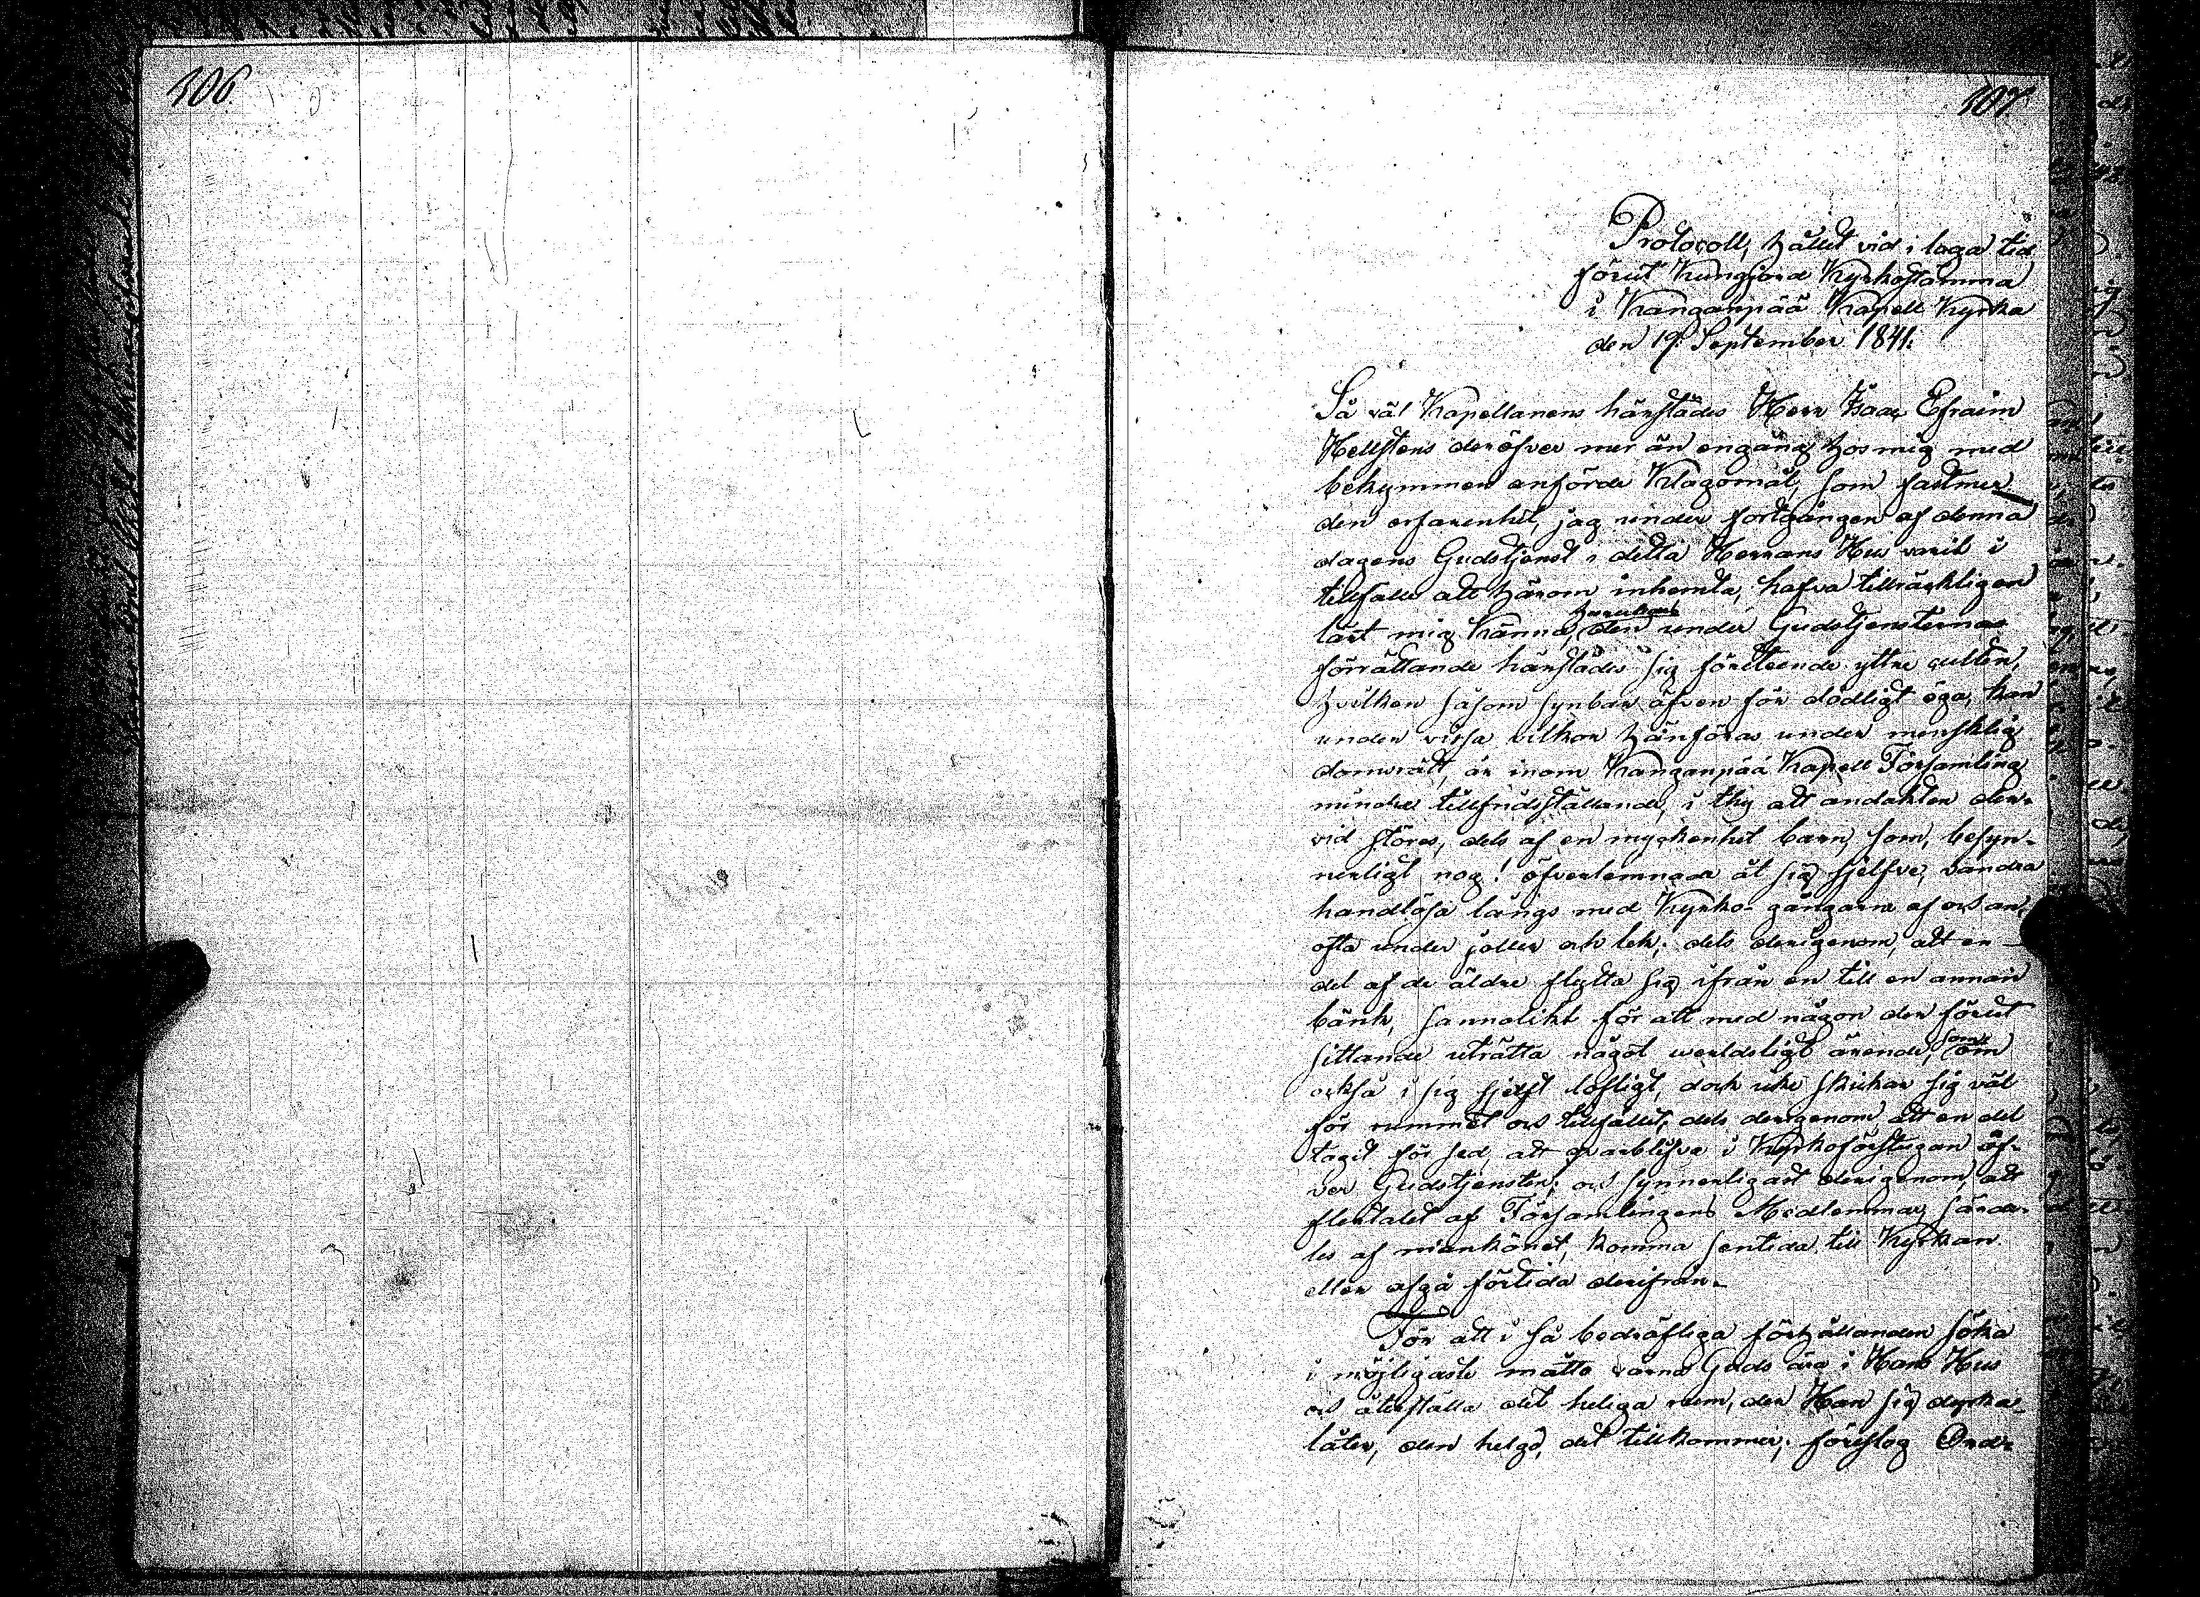 106.
107.
Protocoll, hållet vid i laga tid
förut kungjord Kyrkostämma
i Kanganpää Kapell Kyrka
den 19. September 1841.
Så väl Kapellanens härstädes Herr Isaac Efraim
Hellstens deröfver mer än engång hos mig med
bekymmer anförde Klagomål, som fastmer
den erfarenhet, jag under fortgången af denna
dagens Gudstjenst i detta Herrans Hus varit i
tillfälle att härom inhemta, hafva tillräckligen
lärt mig känna, huruledes
den under Gudstjensternas
förrättande härstädes sig företeende yttre culten,
hvilken såsom synbar äfven för dödligt öga, kan
under vissa vilkor hänföras under mensklig
domsrätt, är inom Kanganpää Kapell Församling
mindre tillfridsställande, i thy att andakten der-
vid störes, dels af en myckenhet barn, som, besyn-
nerligt nog! öfverlemnade åt sig sjelfve, vandra
handlösa längs med Kyrko-gångarne af och an,
ofta under joller och lek; dels derigenom, att en
del af de äldre flytta sig ifrån en till en annan
bänk, sannolikt för att med någon der förut
sittande uträtta något werldsligt ärende, som
om
också i sig sjelft lofligt, dock icke skickar sig väl
för rummet och tillfället; dels derigenom, att en del
tagit för sed, att qvarblifva i Kyrkoförstugan öf-
ver Gudstjensten; och synnerligast derigenom, att
flertalet af Församlingens Medlemmar, särde-
les af mankönet, komma sentida till Kyrkan
eller afgå förtida derifrån.
För att i så bedröfliga förhållanden söka
i möjligaste måtto värna Guds ära i Hans Hus
och återställa det heliga rum, der Han sig dyrka
låter, den helgd, det tillkommer; föreslog Ord-